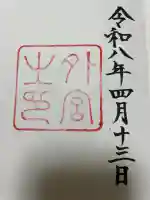 令和八年四月十三日
外宮
之印